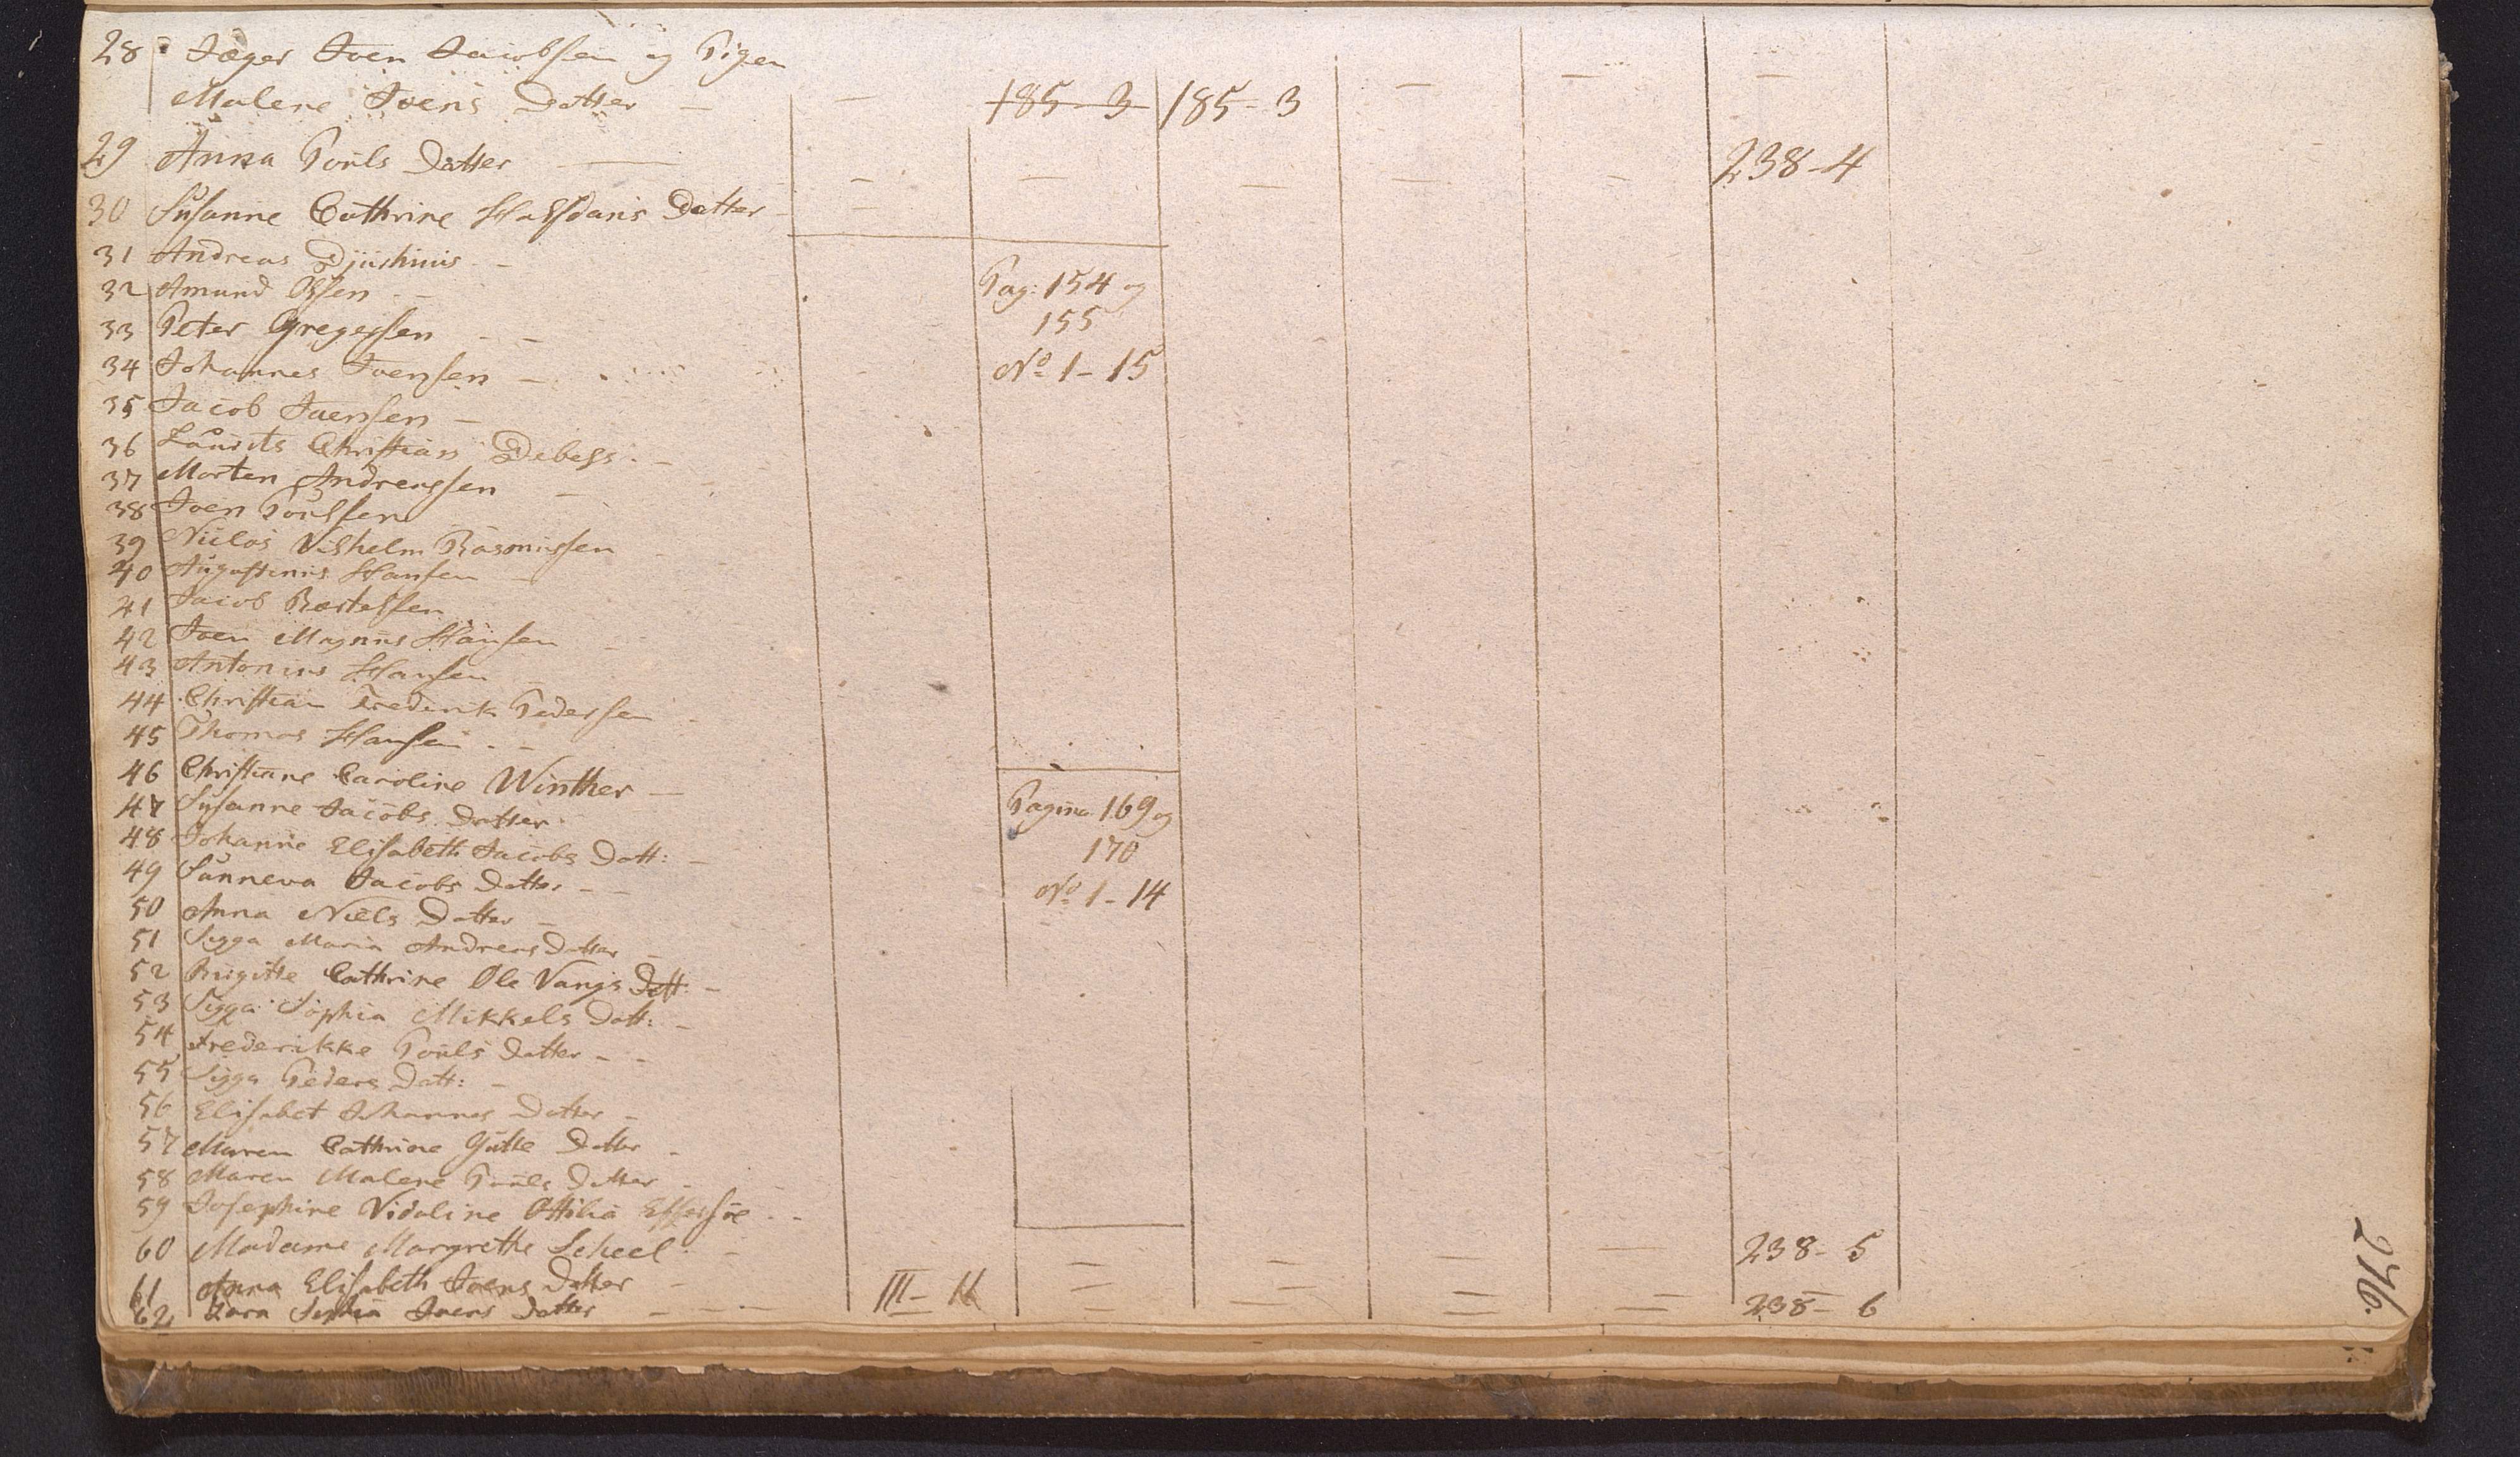 28 Jæger Joen Jacobsen og Pigen
Malene Joens Datter — — 185-3 185-3 — — —
29 Anna Pouls Datter — — — — — — 238-4
30 Susanne Cathrine Halfdans Datter - —
31 Andreas Djurhuus -
32 Amund Olsen - - Pag: 154 og
33 Peter Gregersen - - 155
34 Johannes Joensen - No 1-15
35 Jacob Joensen -
36 Laurits Christian Debess. -
37 Morten Andreassen -
38 Joen Poulsen
39 Niclas Vilhelm Rasmussen
40 Augustinus Hansen -
41 Jacob Bertelsen
42 Joen Magnus Hansen -
43 Antonius Hansen
44 Christian Frederik Pedersen
45 Thomas Hansen - -
46 Christiane Caroline Winther -
47 Susanne Jacobs Datter Pagina 169 og
48 Johanne Elisabeth Jacobs Datt: - 170
49 Sunneva Jacobs Datter - - No 1-14
50 Anna Niels Datter -
51 Sigga Maria Andreas Datter
52 Birgitte Cathrine Ole Vangs Datt: -
53 Sigga Sophia Mikkels Datt: -
54 Frederikke Pouls Datter - -
55 Sigga Peders Datt: -
56 Elisabet Johannes Datter -
57 Maren Cathrine Gutte Datter -
58 Maren Malene Pouls Datter -
59 Josephine Vidaline Ottilia Effersøe - -
60 Madame Margrethe Scheel - — — — — 238-5
61 Anna Elisabeth Joens Datter - III-11 — — — — —
62 Sophia Joens Datter - - - — — — — 238-6
276.